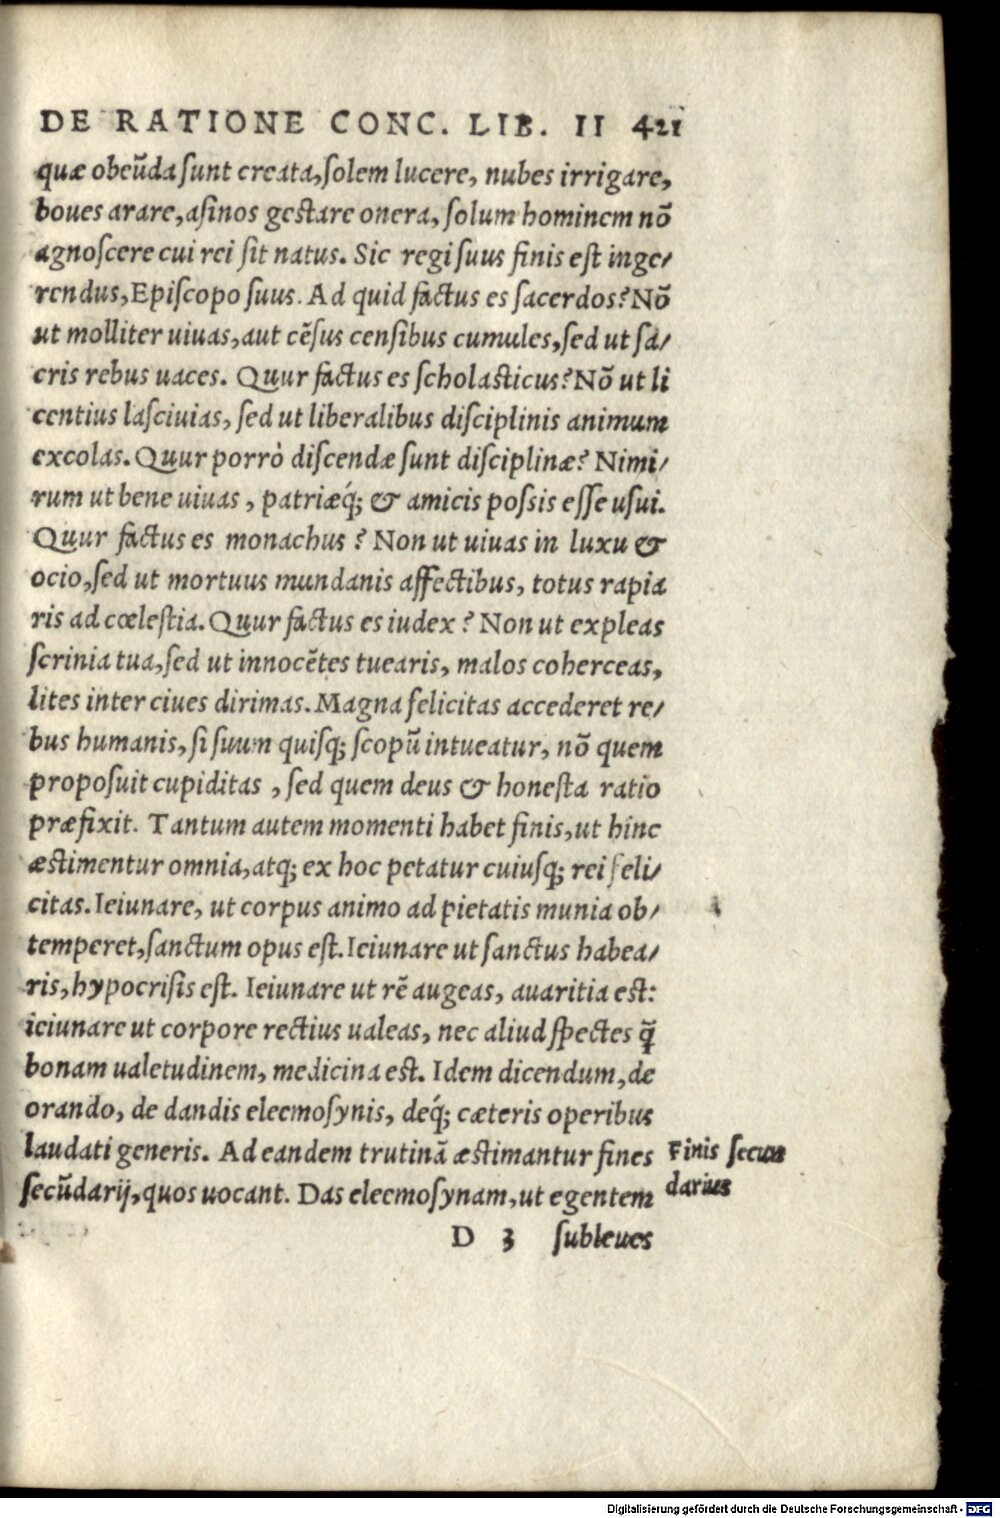 DE RATIONE CONC. LIB. II 421
quæ obeũda ſunt creata, ſolem lucere, nubes irrigare,
boues arare, aſinos geſtare onera, ſolum hominem nõ
agnoſcere cui rei ſit natus. Sic regi ſuus finis eſt inge/
rendus, Epiſcopo ſuus. Ad quid factus es ſacerdos? Nõ
ut molliter uiuas, aut cẽſus cenſibus cumules, ſed ut ſa/
cris rebus uaces. Quur factus es ſcholaſticus? Nõ ut li
centius laſciuias, ſed ut liberalibus diſciplinis animum
excolas. Quur porrò diſcendæ ſunt diſciplinæ? Nimi/
rum ut bene uiuas, patriæq́; & amicis poſsis eſſe uſui.
Quur factus es monachus? Non ut uiuas in luxu &
ocio, ſed ut mortuus mundanis affectibus, totus rapia
ris ad cœleſtia. Quur factus es iudex? Non ut expleas
ſcrinia tua, ſed ut innocẽtes tuearis, malos coherceas,
lites inter ciues dirimas. Magna felicitas accederet re/
bus humanis, ſi ſuum quiſq; ſcopũ intueatur, nõ quem
propoſuit cupiditas, ſed quem deus & honeſta ratio
præfixit. Tantum autem momenti habet finis, ut hinc
æſtimentur omnia, atq; ex hoc petatur cuiuſq; rei feli/
citas. Ieiunare, ut corpus animo ad pietatis munia ob/
temperet, ſanctum opus eſt. Ieiunare ut ſanctus habea/
ris, hypocriſis eſt. Ieiunare ut rẽ augeas, auaritia eſt:
ieiunare ut corpore rectius ualeas, nec aliud ſpectes q̃
bonam ualetudinem, medicina eſt. Idem dicendum, de
orando, de dandis eleemoſynis, deq́; cæteris operibus
laudati generis. Ad eandem trutinã æſtimantur fines
ſecũdarij, quos uocant. Das eleemoſynam, ut egentem
Finis ſecun
darius
D 3 ſubleues
Digitalisierung gefördert durch die Deutsche Forschungsgemeinschaft - DFG